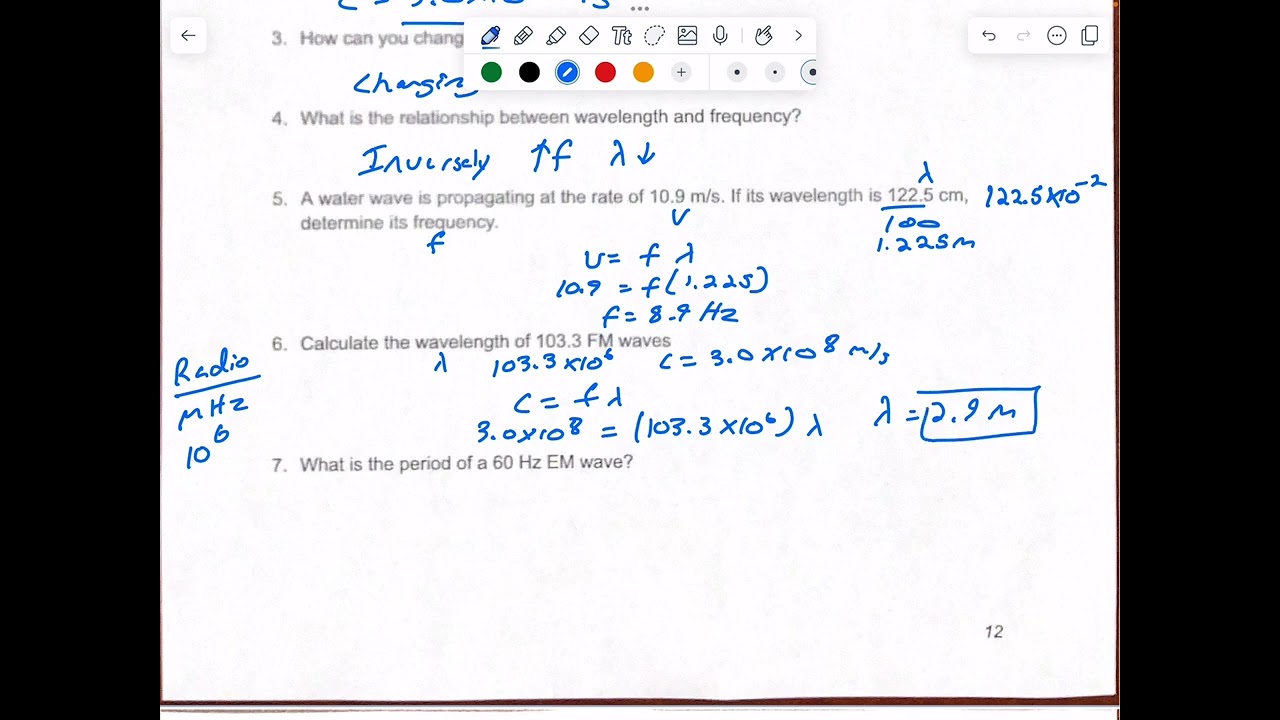 3. How can you chang
Tt
Changing
4. What is the relationship between wavelength and frequency?
Inversely ↑f λ↓
λ
5. A water wave is propagating at the rate of 10.9 m/s. If its wavelength is 122.5 cm, 122.5x10⁻²
determine its frequency. v 100
f 1.225m
v = f λ
10.9 = f(1.225)
f = 8.9 Hz
6. Calculate the wavelength of 103.3 FM waves
λ 103.3x10⁶ c = 3.0x10⁸ m/s
Radio
MHz
10⁶
c = f λ
3.0x10⁸ = (103.3x10⁶) λ λ = 2.9 m
7. What is the period of a 60 Hz EM wave?
12